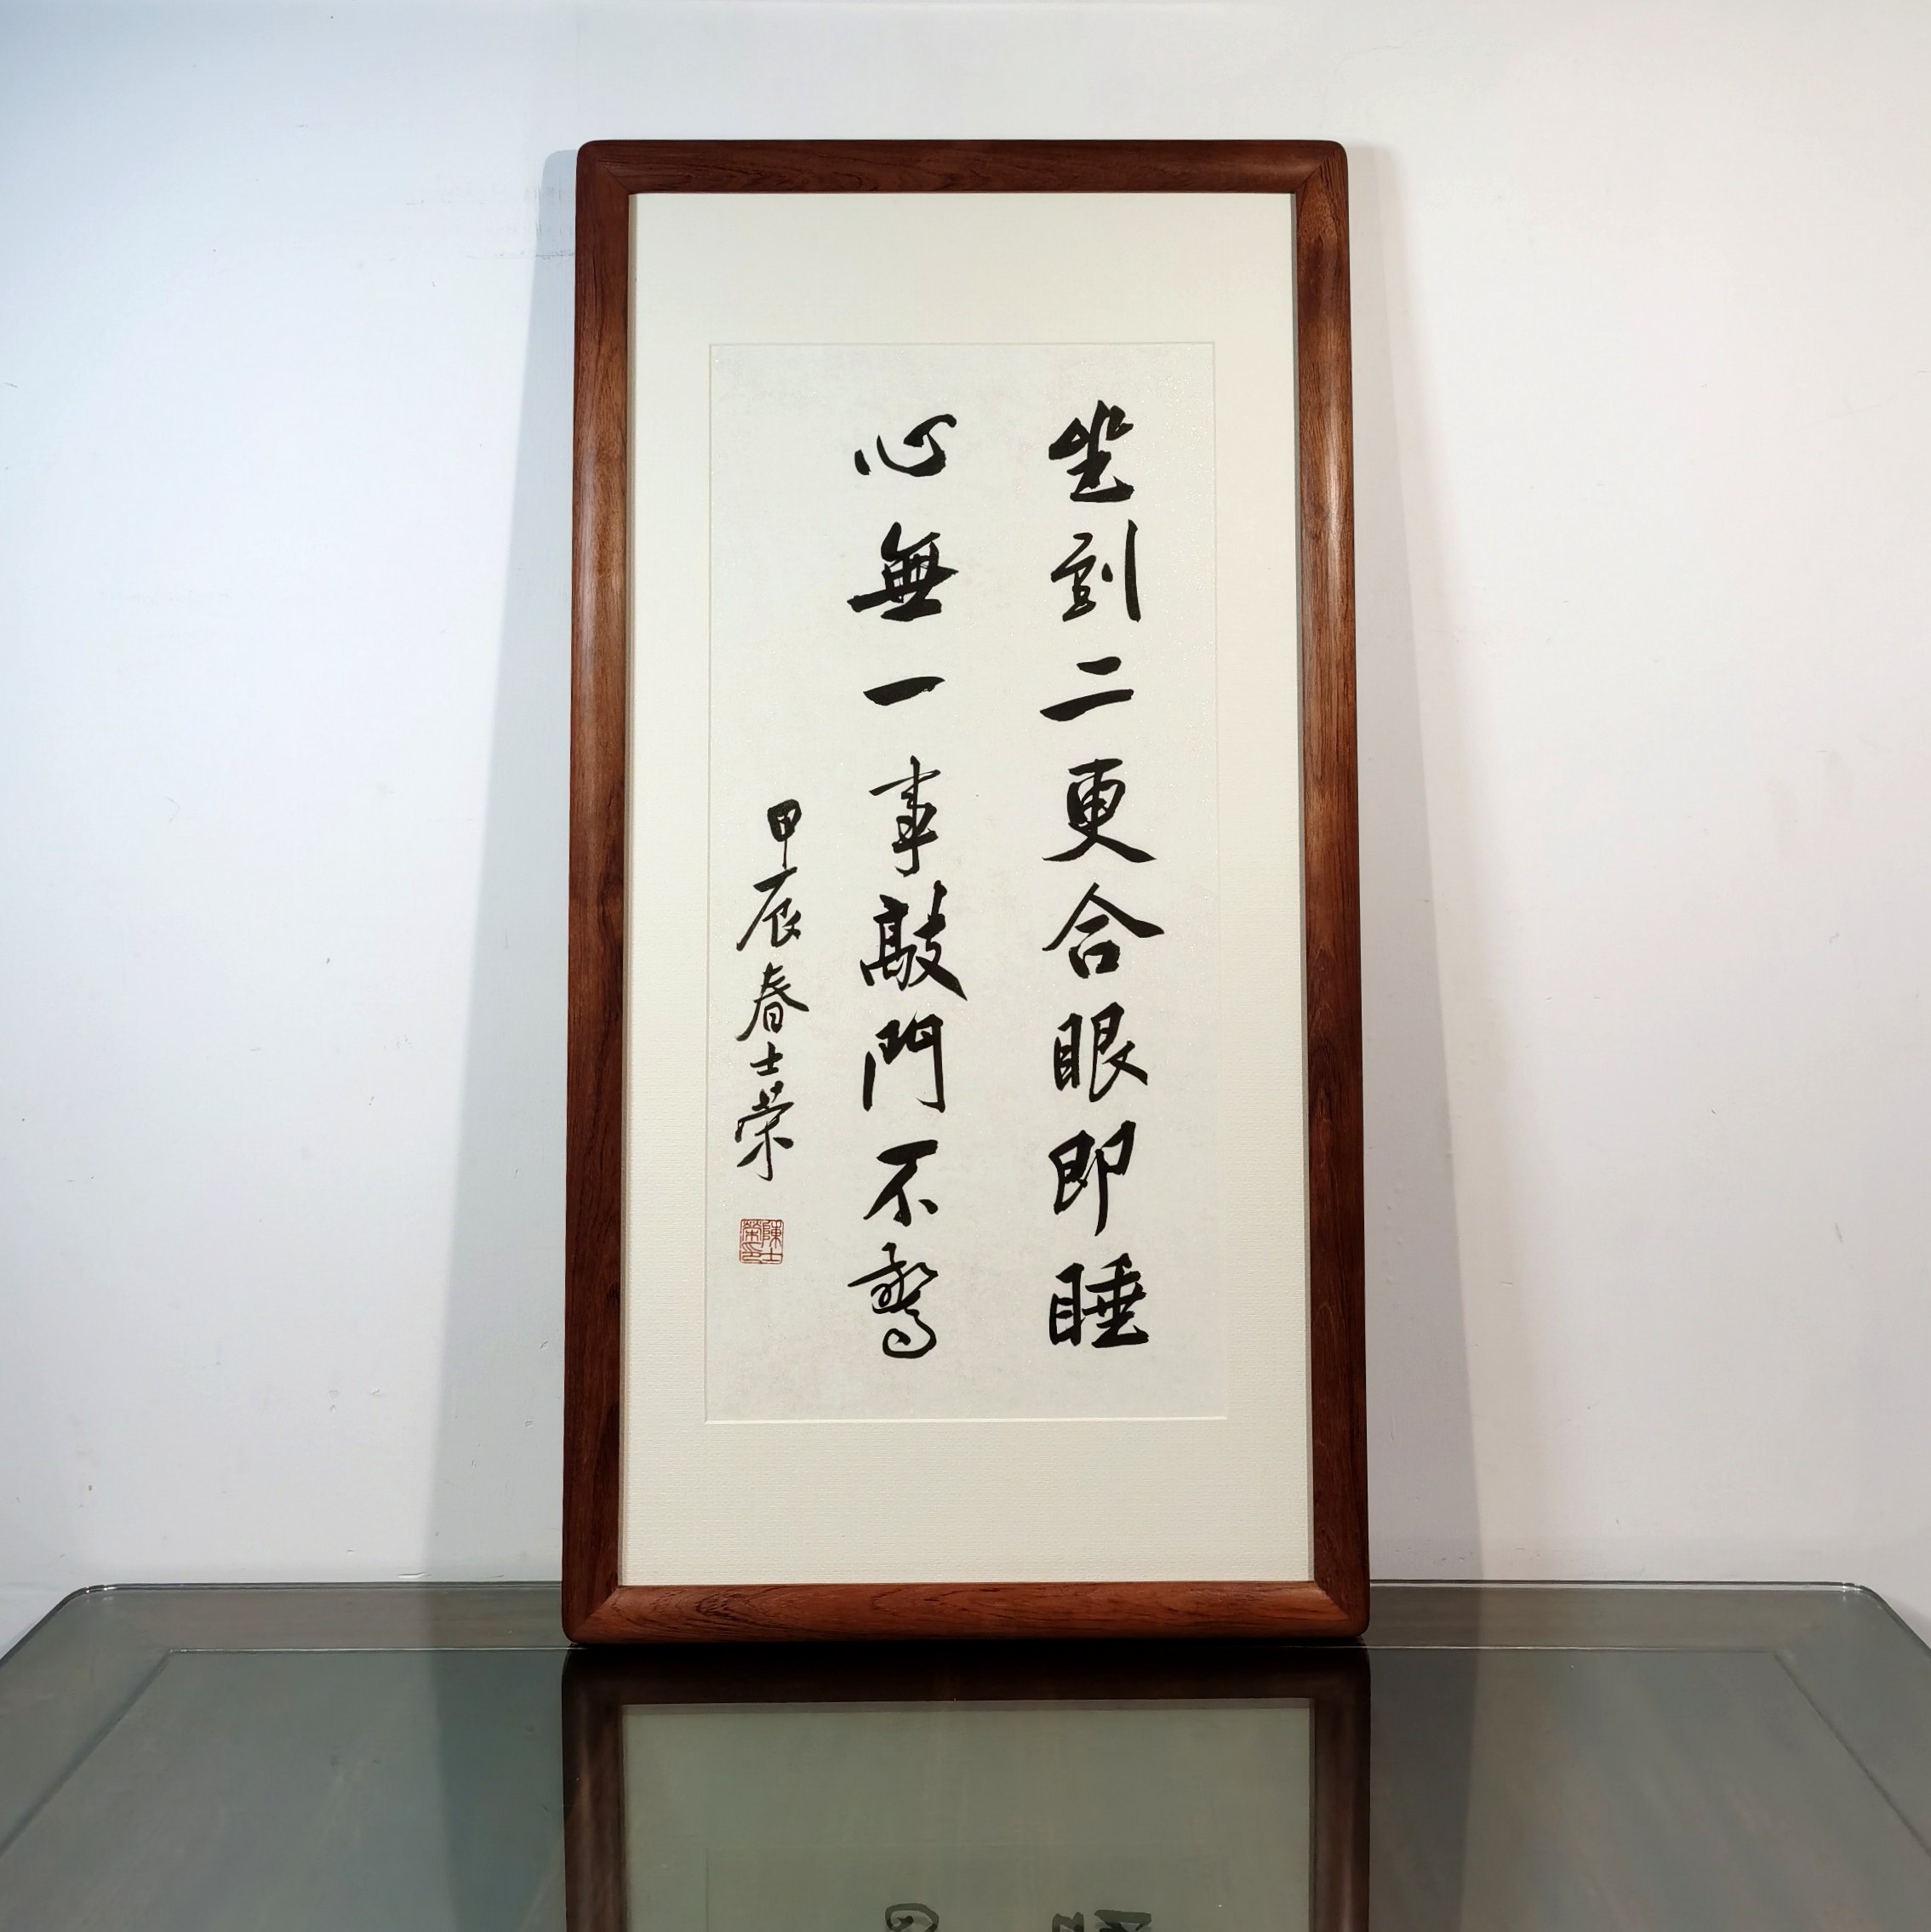 坐到二更合眼即睡
心無一事敲門不驚
甲辰春士荣
陳士榮印